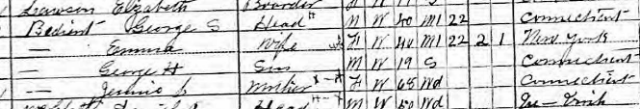 Lawson Elizabeth Boarder
Bedient George S Head M W 40 M1 22 Connecticut
— Emma Wife F W 40 M1 22 2 1 New York
— George H Son M W 19 S Connecticut
— Mother F W 68 Wd Connecticut
Head M W 50 Wd